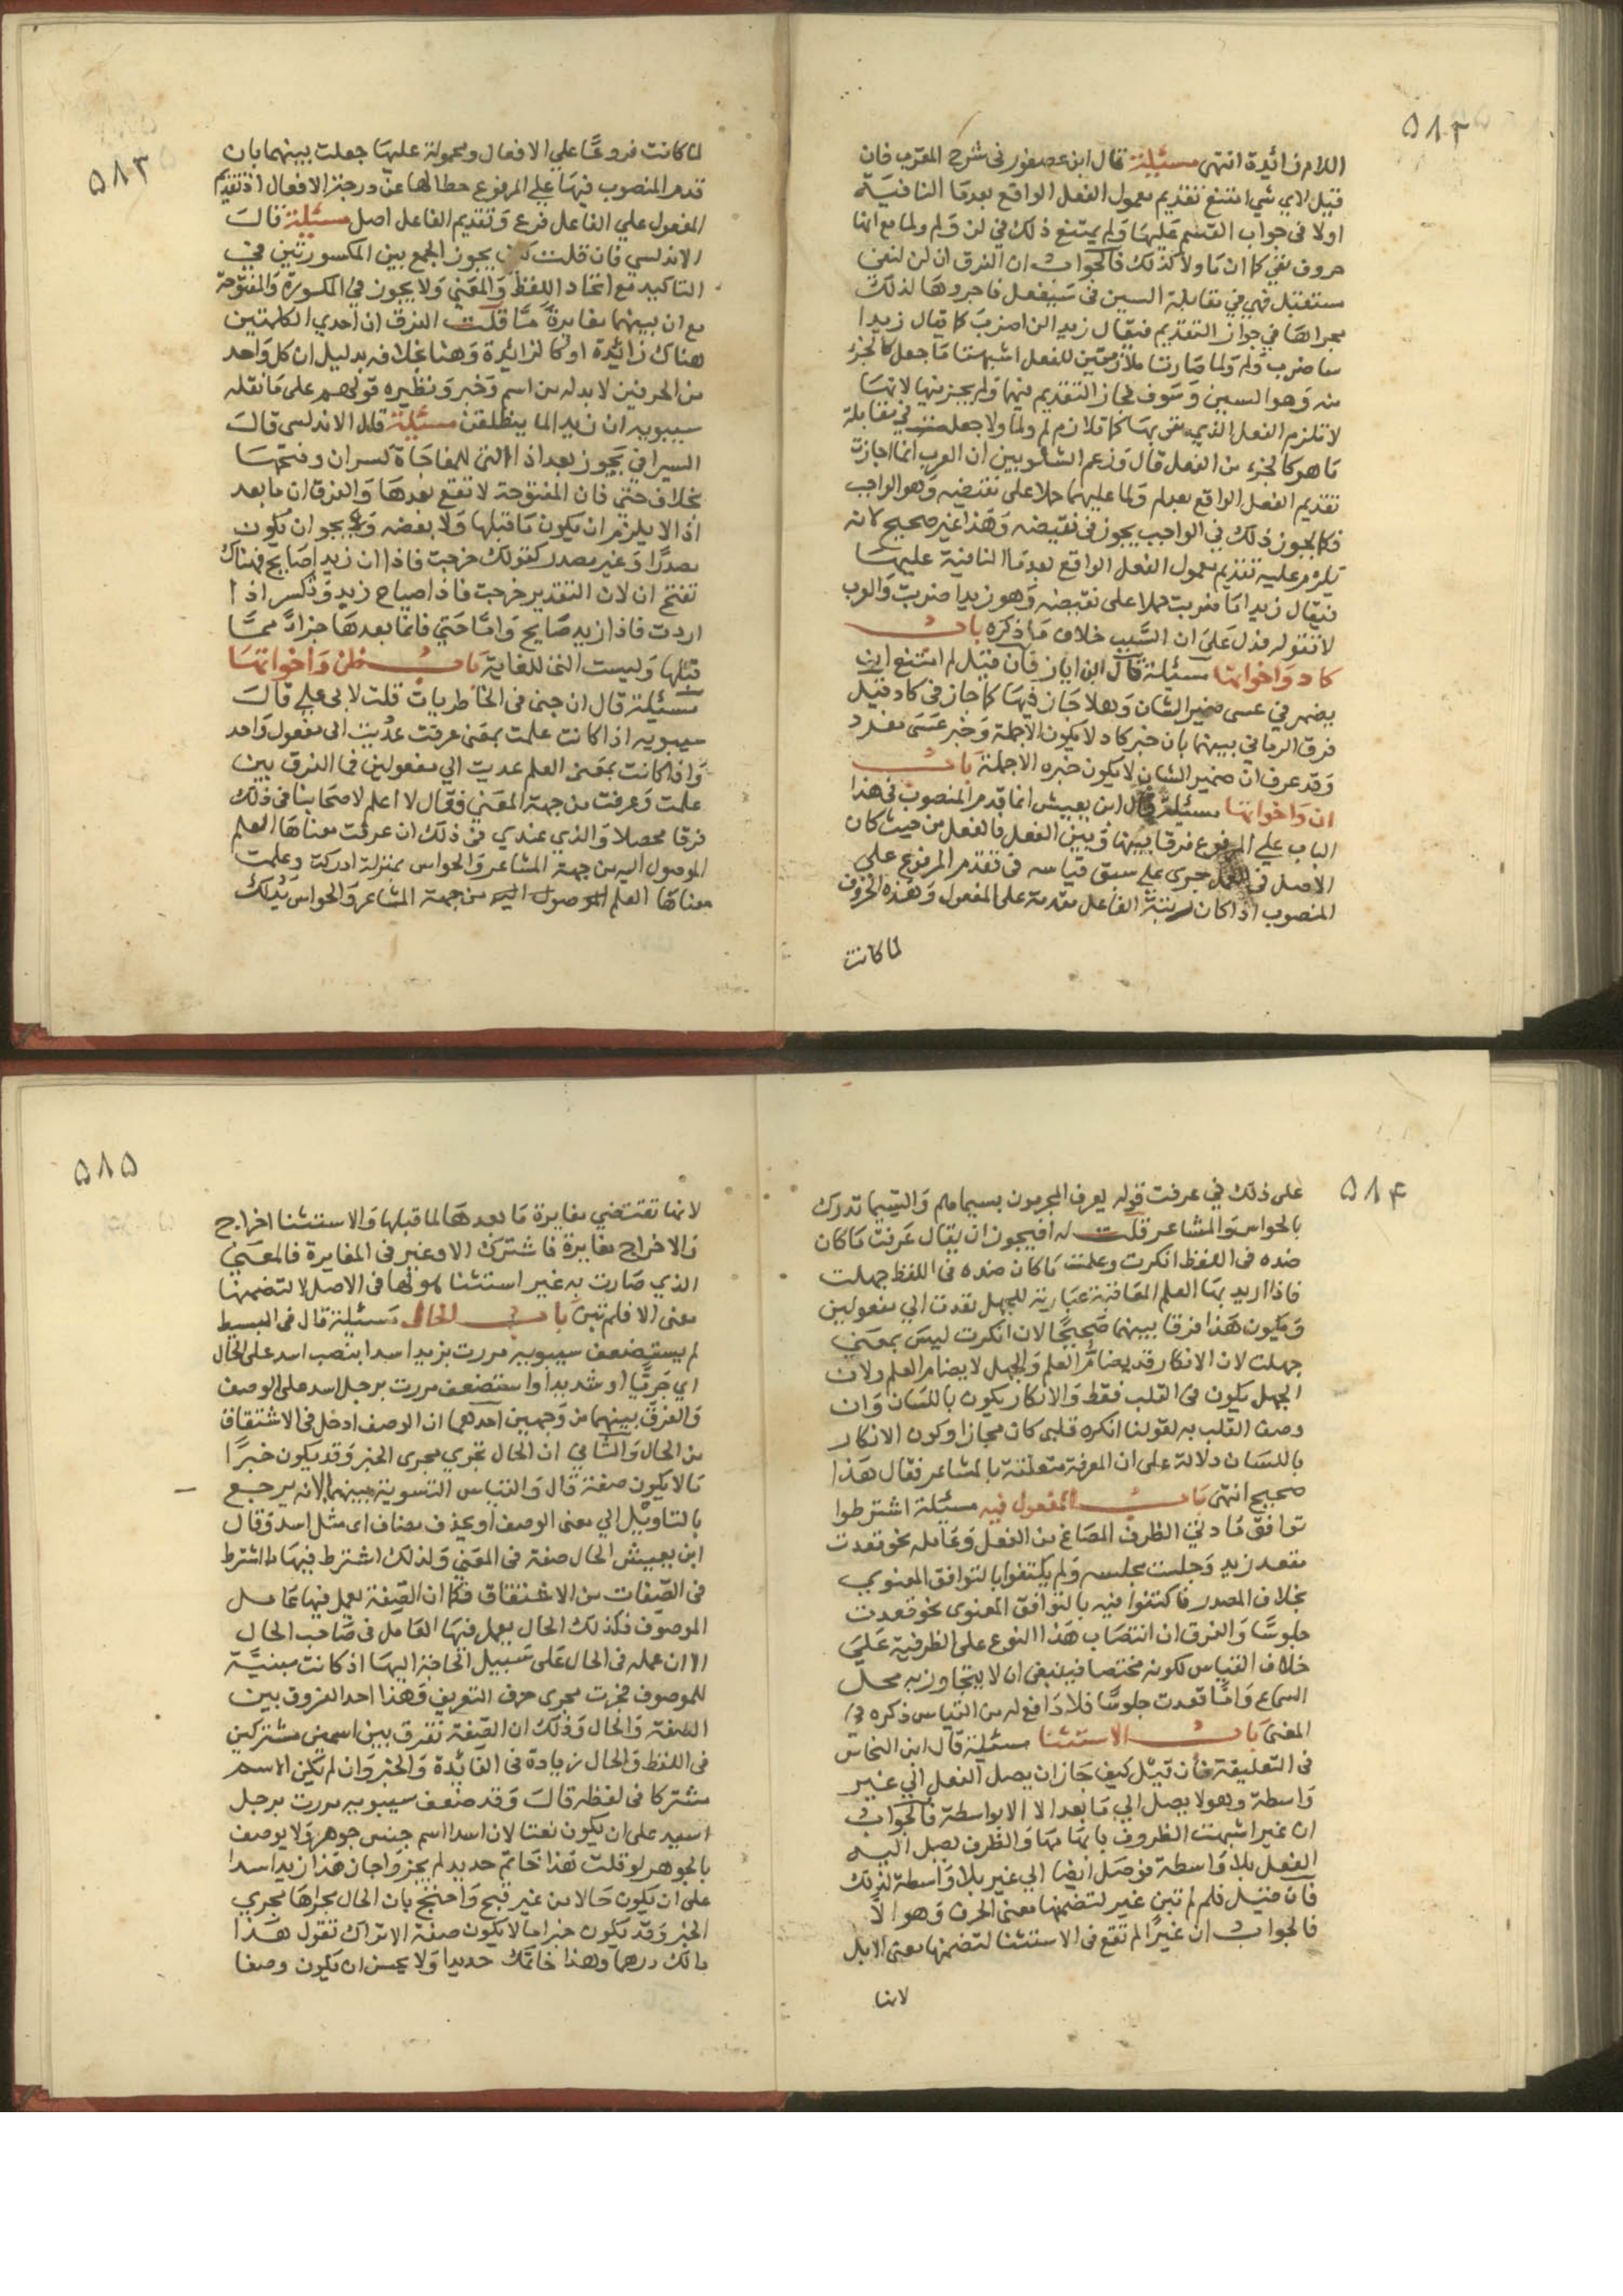 ٥٨٢
اللام زائدة انتهى مسئلة قال ابن عصفور فى شرح المقرب فان
قيل لاي شي امتنع تقديم معمول الفعل الواقع بعد ما النافية
اولا فى جواب القسم عليها ولم يمتنع ذلك في لن ولم ولما مع انها
حروف نفي كما ان ما ولا كذلك فالجواب ان الفرق ان لن لنفي
مستقبل فهي في مقابلة السين فى سيفعل فاجروها لذلك
مجراها في جواز التقديم فيقال زيدا لن اضرب كما يقال زيدا
ساضرب ولم ولما صارتا ملازمتين للفعل اشبهتا ما جعل كالجزء
منه وهو السين وسوف فجاز التقديم فيها ولم يجز منها لانها
لا تلزم الفعل الذي نفي بها كما تلازم لم ولما ولا جعلت في مقابلة
ما هو كالجزء من الفعل قال وزعم الشلوبين ان العرب انما اجازت
تقديم الفعل الواقع بعد لم ولما عليهما حملا على نقيضه وهو الواجب
فكما يجوز ذلك في الواجب يجوز فى نقيضه وهذا غير صحيح لانه
يلزم عليه تقديم معمول الفعل الواقع بعد ما النافية عليها
فيقال زيدا ما ضربت حملا على نقيضه وهو زيدا ضربت والعرب
لا تقوله فدل على ان السبب خلاف ما ذكره باب
كاد واخواتها مسئلة قال ابن اياز فان قيل لم امتنع ان
يضمر في عسى ضمير الشان وهلا جاز فيها كما جاز فى كاد قيل
فرق الرماني بينهما بان خبر كاد لا يكون الا جملة وخبر عسى مفرد
وقد عرف ان ضمير الشان لا يكون خبره الا جملة باب
ان واخواتها مسئلة قال ابن يعيش انما قدم المنصوب فى هذا
الباب على المرفوع فرقا بينها وبين الفعل فالفعل من حيث كان
الاصل فى العمل جرى على سنن قياسه فى تقدم المرفوع على
المنصوب اذا كان رتبة الفاعل مقدمة على المفعول وهذه الحروف
لما كانت
٥٨٣
لما كانت فروعا على الافعال ومحمولة عليها جعلت بينهما بان
قدم المنصوب فيها على المرفوع حطا لها عن درجة الافعال اذ تقديم
المفعول على الفاعل فرع وتقديم الفاعل اصل مسئلة قال
الاندلسي فان قلت كيف يجوز الجمع بين المكسورتين في
التاكيد مع اتحاد اللفظ والمعني ولا يجوز في المكسورة والمفتوحة
مع ان بينهما مغايرة ما قلت الفرق ان احدي الكلمتين
هناك زائدة او كالزائدة وهنا بخلافه بدليل ان كل واحد
من الحرفين لا بد له من اسم وخبر ونظيره قولهم على ما نقله
سيبويه ان زيدا لما ينطلقن مسئلة قال الاندلسى قال
السيرافي يجوز بعد اذا التى للمفاجاة كسر ان وفتحها
بخلاف حتى فان المفتوحة لا تقع بعدها والفرق ان ما بعد
اذا لا يلزم ان يكون ما قبلها ولا بعضه ويجو ان يكون
مصدرا وغير مصدر كقولك خرجت فاذا ان زيدا صايح فهناك
تفتح ان لان التقدير خرجت فاذا صياح زيد وتكسر اذا
اردت فاذا زيد صايح واما حتي فانما بعدها جزا مما
قبلها وليست التى للغاية باب ظن واخواتها
مسئلة قال ابن جنى فى الخاطريات قلت لابى على قال
سيبويه اذا كانت علمت بمعنى عرفت عديت الى مفعول واحد
واذا كانت بمعنى العلم عديت الي مفعولين فما الفرق بين
علمت وعرفت من جهة المعني فقال لا اعلم لاصحابنا فى ذلك
فرقا محصلا والذي عندي فى ذلك ان عرفت معناها العلم
الموصول اليه من جهة المشاعر والحواس بمنزلة ادركت وعلمت
معناها العلم الموصول اليه من جهة المشاعر والحواس يدلك
٥٨٤
على ذلك في عرفت قوله يعرف المجرمون بسيماهم والسيما تدرك
بالحواس والمشاعر قلت له افيجوز ان يقال عرفت ما كان
ضده فى اللفظ انكرت وعلمت ما كان ضده فى اللفظ جهلت
فاذا اريد بها العلم المعاقبة عبارته للجهل تعدت الي مفعولين
ويكون هذا فرقا بينهما صحيحا لان انكرت ليس بمعني
جهلت لان الانكار قد يضام العلم والجهل لا يضام العلم ولان
الجهل يكون فى القلب فقط والانكار يكون باللسان وان
وصف القلب به لقولنا انكره قلبى كان مجازا وكون الانكار
باللسان دلالة على ان المعرفة متعلقة بالمشاعر فقال هذا
صحيح انتهى باب المفعول فيه مسئلة اشترطوا
توافق مادتي الظرف المصاغ من الفعل وعامله نحو قعدت
مقعد زيد وجلست مجلسه ولم يكتفوا بالتوافق المعنوي
بخلاف المصدر فاكتفوا فيه بالتوافق المعنوى نحو قعدت
جلوسا والفرق ان انتصاب هذا النوع على الظرفية على
خلاف القياس لكونه مختصا فينبغى ان لا يتجاوز به محل
السماع واما قعدت جلوسا فلا دافع له من القياس ذكره في
المغنى باب الاستثنا مسئلة قال ابن النحاس
فى التعليقة فأن قيل كيف جاز ان يصل الفعل الي غير
واسطة وهو لا يصل الي ما بعد الا الا بواسطة فالجواب
ان غير اشبهت الظروف بابهامها والظرف يصل اليه
الفعل بلا واسطة فوصل ايضا الي غير بلا واسطة لذلك
فان قيل فلم لم تبن غير لتضمنها معنى الحرف وهو الا
فالجواب ان غيرا لم تقع فى الاستثنا لتضمنها معنى الا بل
لانها
٥٨٥
لانها تقتضي مغايرة ما بعدها لما قبلها والاستثنا اخراج
والاخراج مغايرة فاشترك الا وغير فى المغايرة فالمعني
الذي صارت به غير استثنا هو لها فى الاصل لا لتضمنها
معنى الا فلم تبن باب الحال مسئلة قال فى البسيط
لم يستضعف سيبويه مررت بزيد اسدا بنصب اسد على الحال
اي جريا او شديدا واستضعف مررت برجل اسد على الوصف
والفرق بينهما من وجهين احدهما ان الوصف ادخل فى الاشتقاق
من الحال والثاني ان الحال تجري مجرى الخبر وقد يكون خبرا
ما لا يكون صفة قال والقياس التسوية بينهما لانه يرجع
بالتاويل الي معنى الوصف او بحذف مضاف اى مثل اسد وقال
ابن يعيش الحال صفة فى المعني ولذلك اشترط فيها ما اشترط
فى الصفات من الاشتقاق فكما ان الصفة يعمل فيها عامل
الموصوف فكذلك الحال يعمل فيها العامل فى صاحب الحال
الا ان عمله فى الحال على سبيل الحاجة اليها اذ كانت مبينة
للموصوف فجرت مجرى حرف التعريف وهذا احد الفروق بين
الصفة والحال وذلك ان الصفة تفرق بين اسمين مشتركين
فى اللفظ والحال زيادة فى الفائدة والخبر وان لم يكن الاسم
مشتركا فى لفظه قال وقد ضعف سيبويه مررت برجل
اسد على ان يكون نعتا لان اسدا اسم جنس جوهر ولا يوصف
بالجوهر لو قلت هذا خاتم حديد لم يجز واجاز هذا زيد اسدا
على ان يكون حالا من غير قبح واحتج بان الحال مجراها مجري
الخبر وقد يكون خبرا ما لا يكون صفة الا تراك تقول هذا
مالك درهما وهذا خاتمك حديدا ولا يحسن ان يكون وصفا